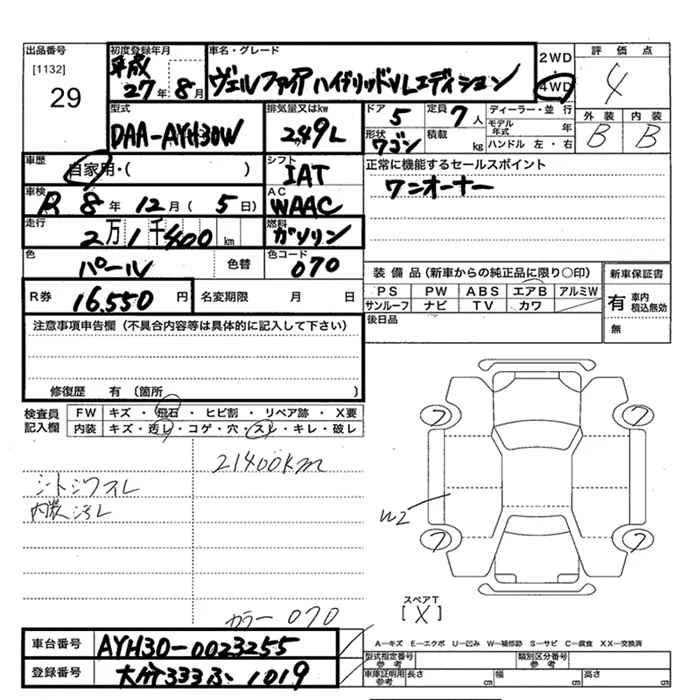 出品番号 初度登録年月 車名・グレード 2WD 評価点
[1132] 平成 27年 8月 ヴェルファイア ハイブリッド VLエディション 4WD 4
29 型式 排気量又はkw ドア 5 定員 7人 ディーラー・並行 外装 内装
DAA-AYH30W 2.49L 形状 ワゴン 積載 kg モデル年式 年 B B
ハンドル 左・右
車歴 自家用・( ) シフト IAT 正常に機能するセールスポイント
車検 R 8年 12月 (5日) AC WAAC ワンオーナー
走行 2万1千400km 燃料 ガソリン
色 パール 色替 色コード 070 装備品(新車からの純正品に限り○印) 新車保証書
R券 16,550円 名変期限 月 日 PS PW ABS エアB アルミW 有 車内積込無効
サンルーフ ナビ TV カワ 無
注意事項申告欄(不具合内容等は具体的に記入して下さい) 後日品
修復歴 有 (箇所 )
検査員記入欄 FW キズ・飛石・ヒビ割・リペア跡・X要
内装 キズ・汚レ・コゲ・穴・スレ・キレ・破レ
21400km
シートシワスレ
内装汚レ
W2
7 7
7 7
カラー 070
スペアT
[X]
車台番号 AYH30-0023255 A―キズ E―エクボ U―凹み W―補修跡 S―サビ C―腐食 XX―交換済
型式指定番号 参考 類別区分番号 参考
登録番号 大分333ふ1019 車庫証明用参考 長さ cm 幅 cm 高さ cm